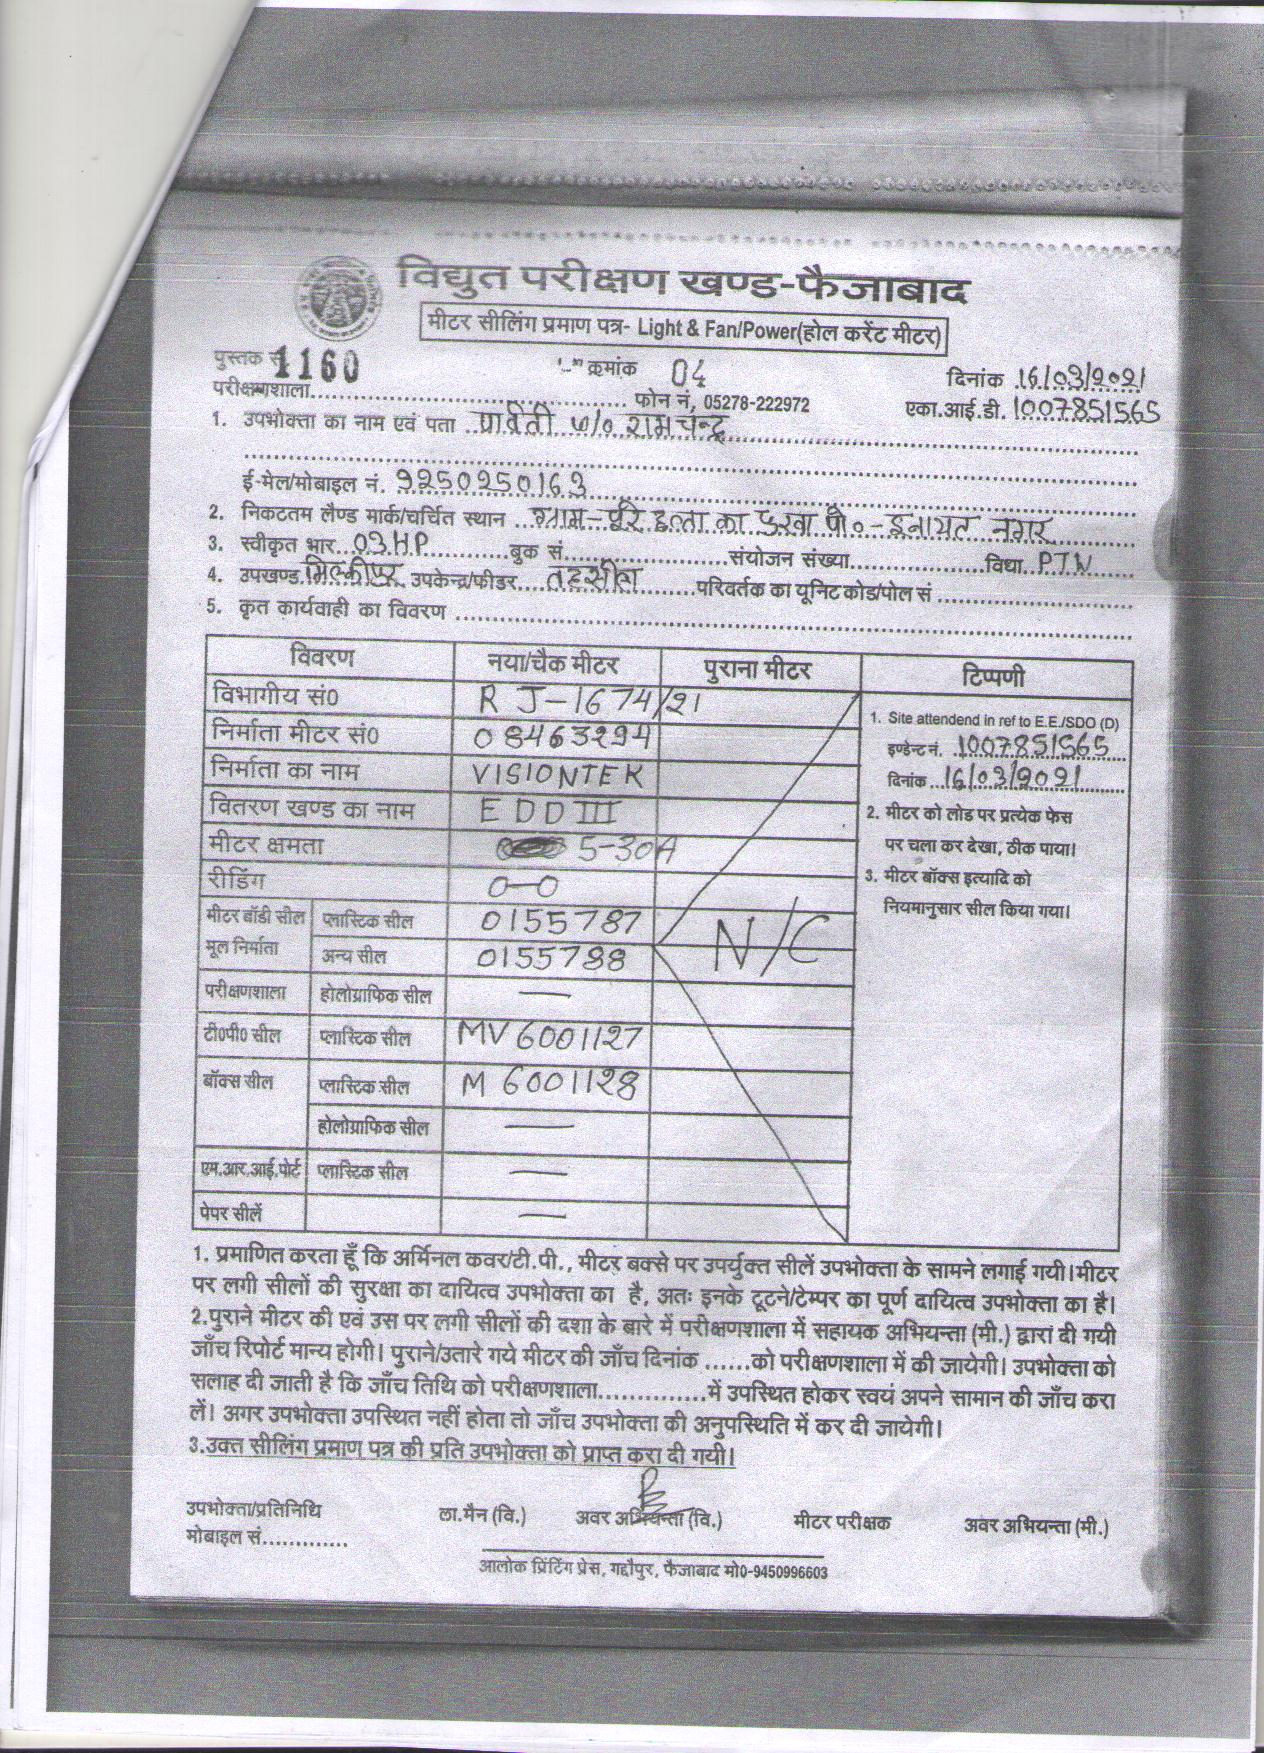 विद्युत परीक्षण खण्ड-फैजाबाद
मीटर सीलिंग प्रमाण पत्र- Light & Fan/Power(होल करेंट मीटर)
पुस्तक सं 1160 क्रमांक 04 दिनांक 16/03/2021
परीक्षणशाला.............................. फोन नं, 05278-222972 एका.आई.डी. 1007851565
1. उपभोक्ता का नाम एवं पता ..पार्वती W/o रामचन्द्र
ई-मेल/मोबाइल नं. 9250250163
2. निकटतम लैण्ड मार्क/चर्चित स्थान ..ग्राम-पूरे हन्ता का पुरवा पो०-इनायत नगर
3. स्वीकृत भार...03 H.P............बुक सं.........................संयोजन संख्या....................विधा..PTW
4. उपखण्ड.मिल्कीपुर उपकेन्द्र/फीडर....तहसील.........परिवर्तक का यूनिट कोड/पोल सं ............................
5. कृत कार्यवाही का विवरण ............................................................
विवरण नया/चैक मीटर पुराना मीटर टिप्पणी
विभागीय सं0 R J-1674/21
निर्माता मीटर सं0 08463294
निर्माता का नाम VISIONTEK
वितरण खण्ड का नाम E D D III
मीटर क्षमता 5-30A
रीडिंग 0-0
मीटर बॉडी सील प्लास्टिक सील 0155787
मूल निर्माता अन्य सील 0155788
N/C
परीक्षणशाला होलोग्राफिक सील —
टी0पी0 सील प्लास्टिक सील MV 6001127
बॉक्स सील प्लास्टिक सील M 6001128
होलोग्राफिक सील —
एम.आर.आई.पोर्ट प्लास्टिक सील —
पेपर सीलें —
1. Site attendend in ref to E.E./SDO (D)
इण्डेन्ट नं. .1007851565
दिनांक ..16/03/2021
2. मीटर को लोड पर प्रत्येक फेस
पर चला कर देखा, ठीक पाया।
3. मीटर बॉक्स इत्यादि को
नियमानुसार सील किया गया।
1. प्रमाणित करता हूँ कि अर्मिनल कवर/टी.पी., मीटर बक्से पर उपर्युक्त सीलें उपभोक्ता के सामने लगाई गयी।मीटर
पर लगी सीलों की सुरक्षा का दायित्व उपभोक्ता का है, अतः इनके टूटने/टेम्पर का पूर्ण दायित्व उपभोक्ता का है।
2.पुराने मीटर की एवं उस पर लगी सीलों की दशा के बारे में परीक्षणशाला में सहायक अभियन्ता (मी.) द्वारा दी गयी
जाँच रिपोर्ट मान्य होगी। पुराने/उतारे गये मीटर की जाँच दिनांक ......को परीक्षणशाला में की जायेगी। उपभोक्ता को
सलाह दी जाती है कि जाँच तिथि को परीक्षणशाला..............में उपस्थित होकर स्वयं अपने सामान की जाँच करा
लें। अगर उपभोक्ता उपस्थित नहीं होता तो जाँच उपभोक्ता की अनुपस्थिति में कर दी जायेगी।
3.उक्त सीलिंग प्रमाण पत्र की प्रति उपभोक्ता को प्राप्त करा दी गयी।
उपभोक्ता/प्रतिनिधि ला.मैन (वि.) अवर अभियन्ता (वि.) मीटर परीक्षक अवर अभियन्ता (मी.)
मोबाइल सं.............
आलोक प्रिंटिंग प्रेस, गद्दौपुर, फैजाबाद मो0-9450996603